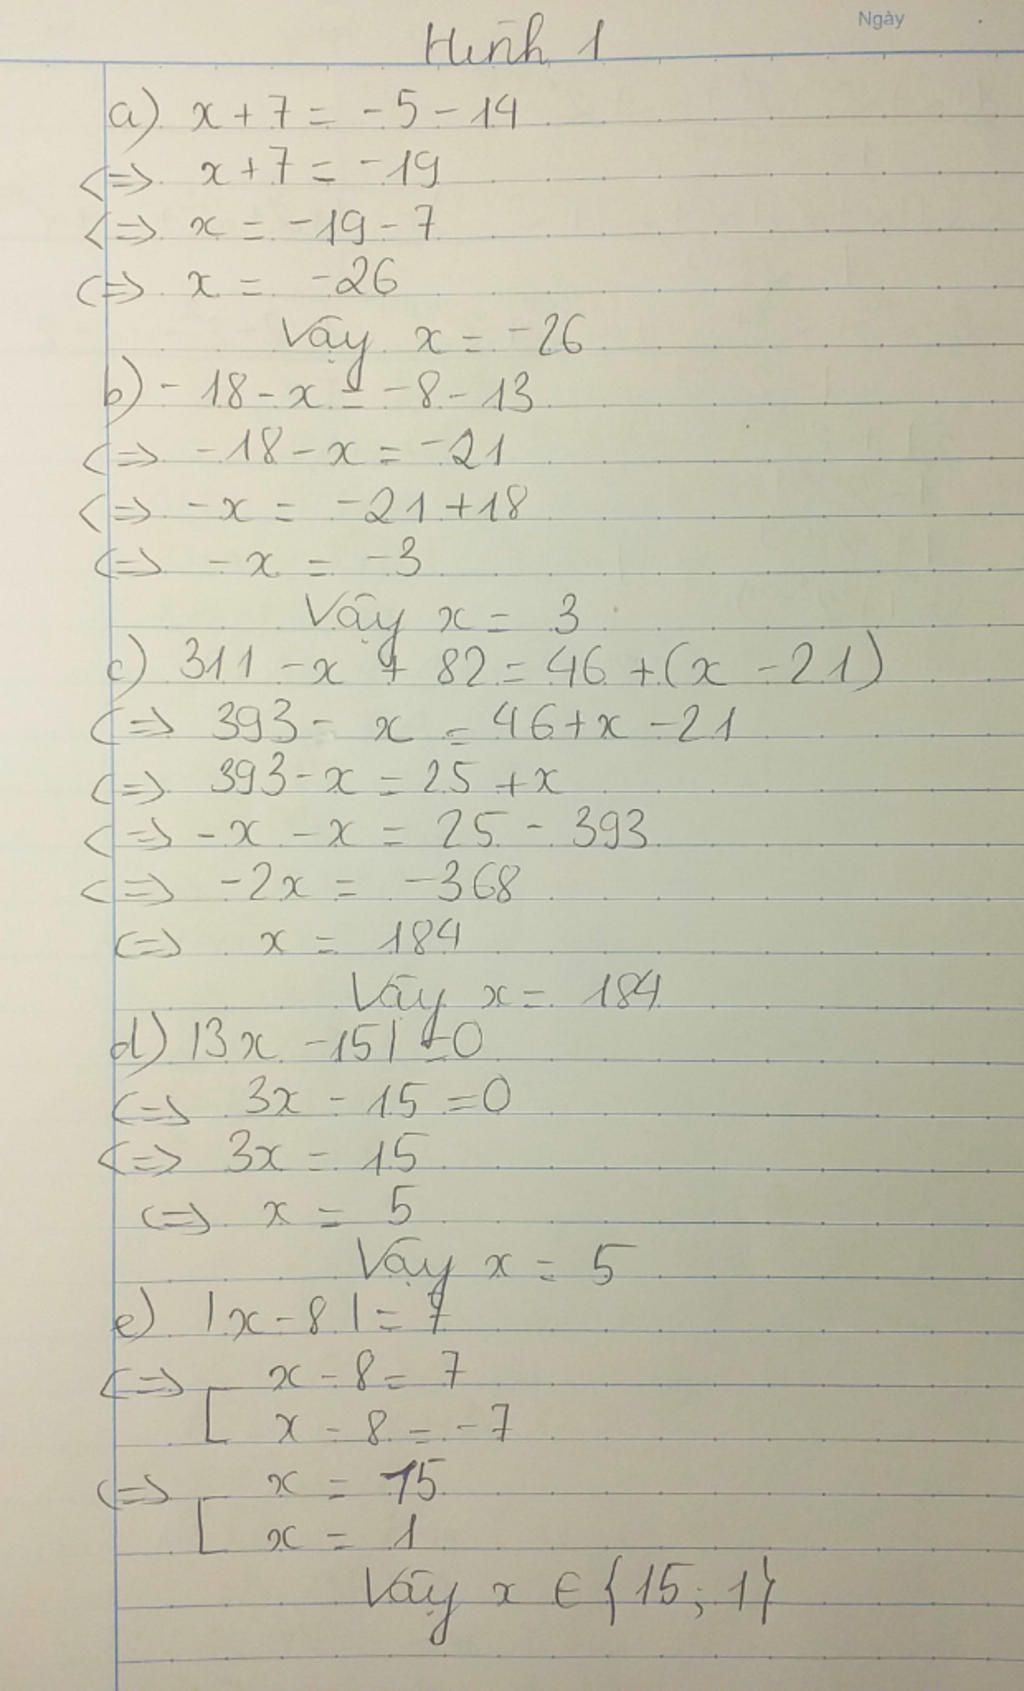 Ngày
Hình 1
a) x + 7 = -5 - 14
<=> x + 7 = -19
<=> x = -19 - 7
<=> x = -26
Vậy x = -26
b) -18 - x = -8 - 13
<=> -18 - x = -21
<=> -x = -21 + 18
<=> -x = -3
Vậy x = 3
c) 311 - x + 82 = 46 + (x - 21)
<=> 393 - x = 46 + x - 21
<=> 393 - x = 25 + x
<=> -x - x = 25 - 393
<=> -2x = -368
<=> x = 184
Vậy x = 184
d) |3x - 15| = 0
<=> 3x - 15 = 0
<=> 3x = 15
<=> x = 5
Vậy x = 5
e) |x - 8| = 7
<=> [ x - 8 = 7
x - 8 = -7
<=> [ x = 15
x = 1
Vậy x ∈ {15; 1}